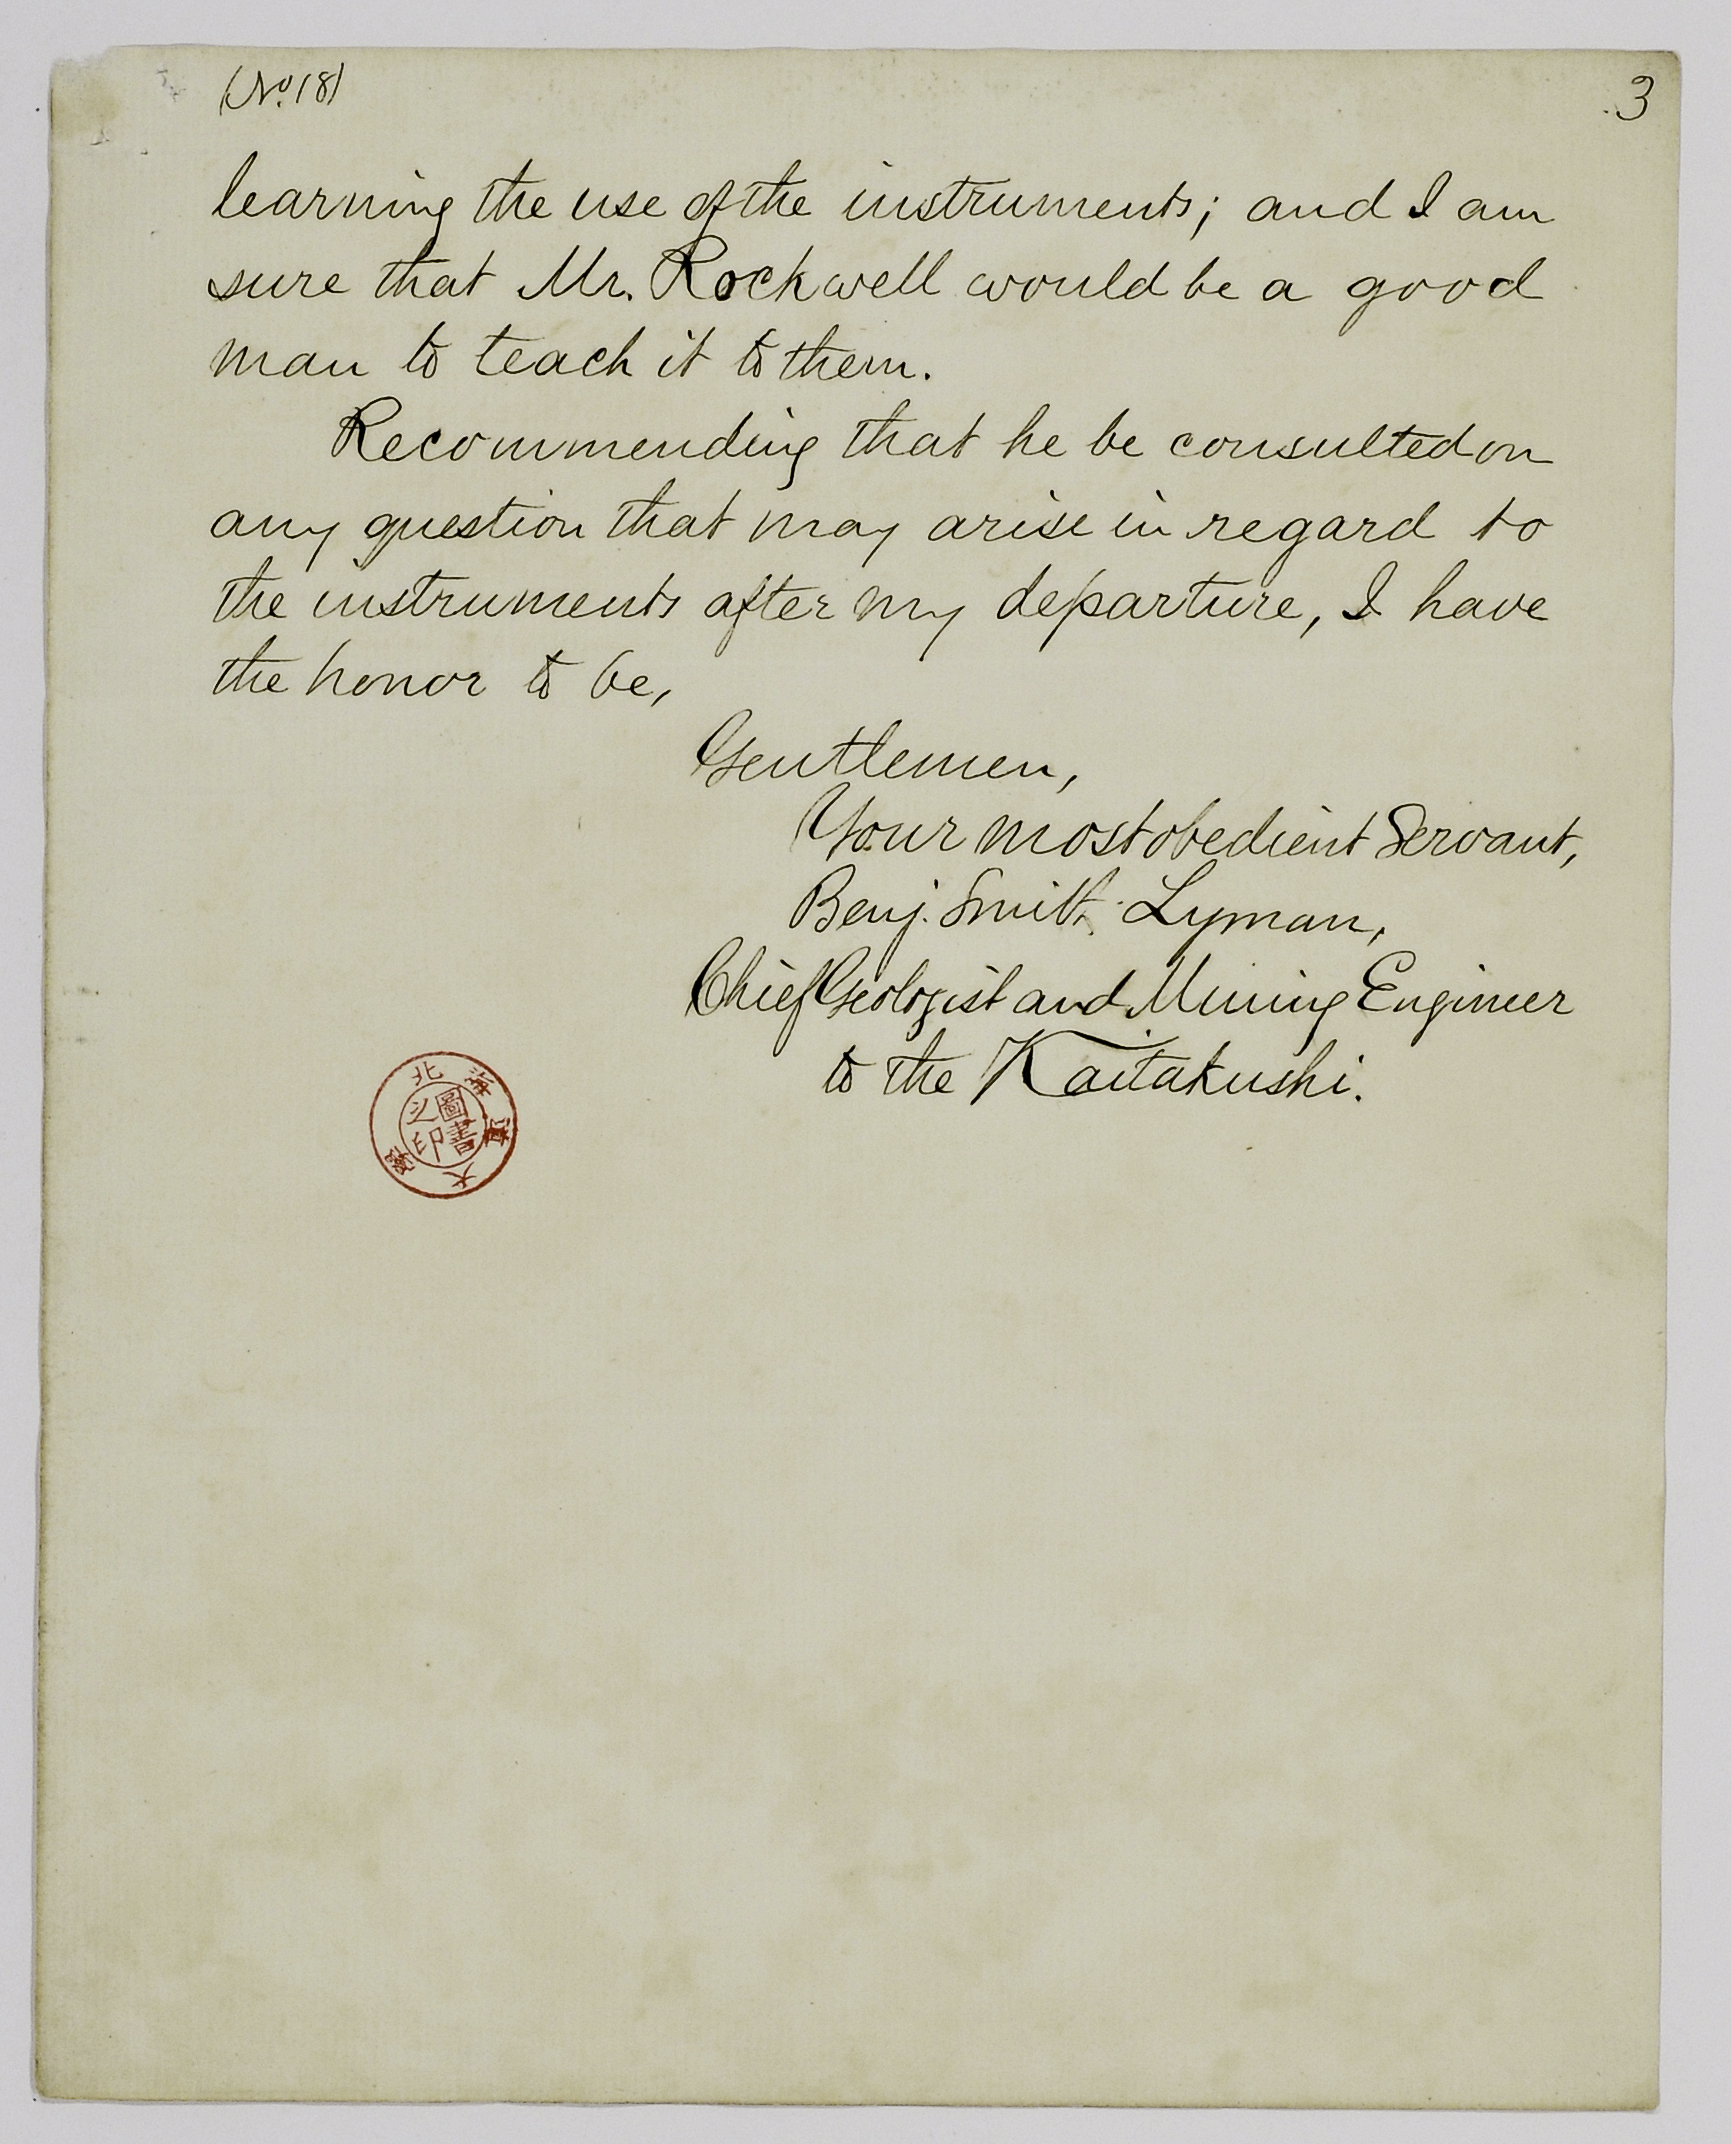 (No. 18)
3
learning the use of the instruments; and I am
sure that Mr. Rockwell would be a good
man to teach it to them.
Recommending that he be consulted on
any question that may arise in regard to
the instruments after my departure, I have
the honor to be,
Gentlemen,
Your most obedient Servant,
Benj. Smith Lyman,
Chief Geologist and Mining Engineer
to the Kaitakushi.
北海道大學
圖書之印